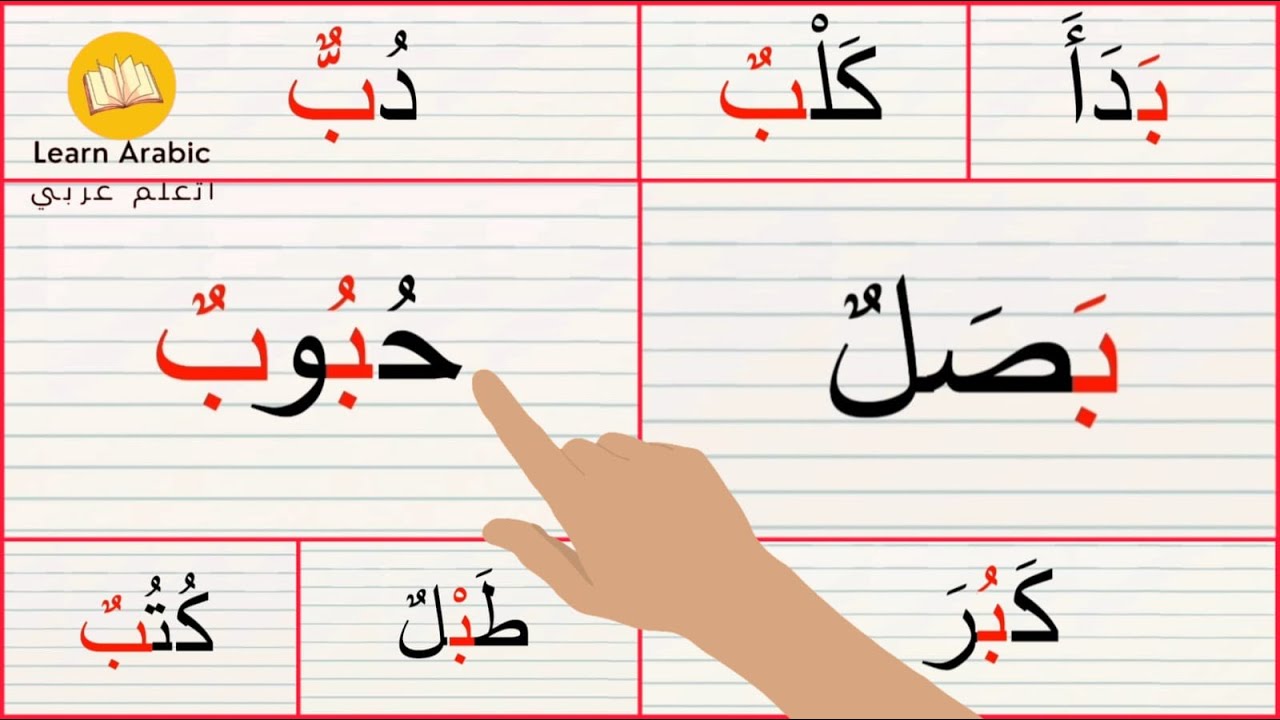 بَدَأَ
كَلْبٌ
دُبٌّ
Learn Arabic
اتعلم عربي
بَصَلٌ
حُبُوبٌ
كَبُرَ
طَبْلٌ
كُتُبٌ